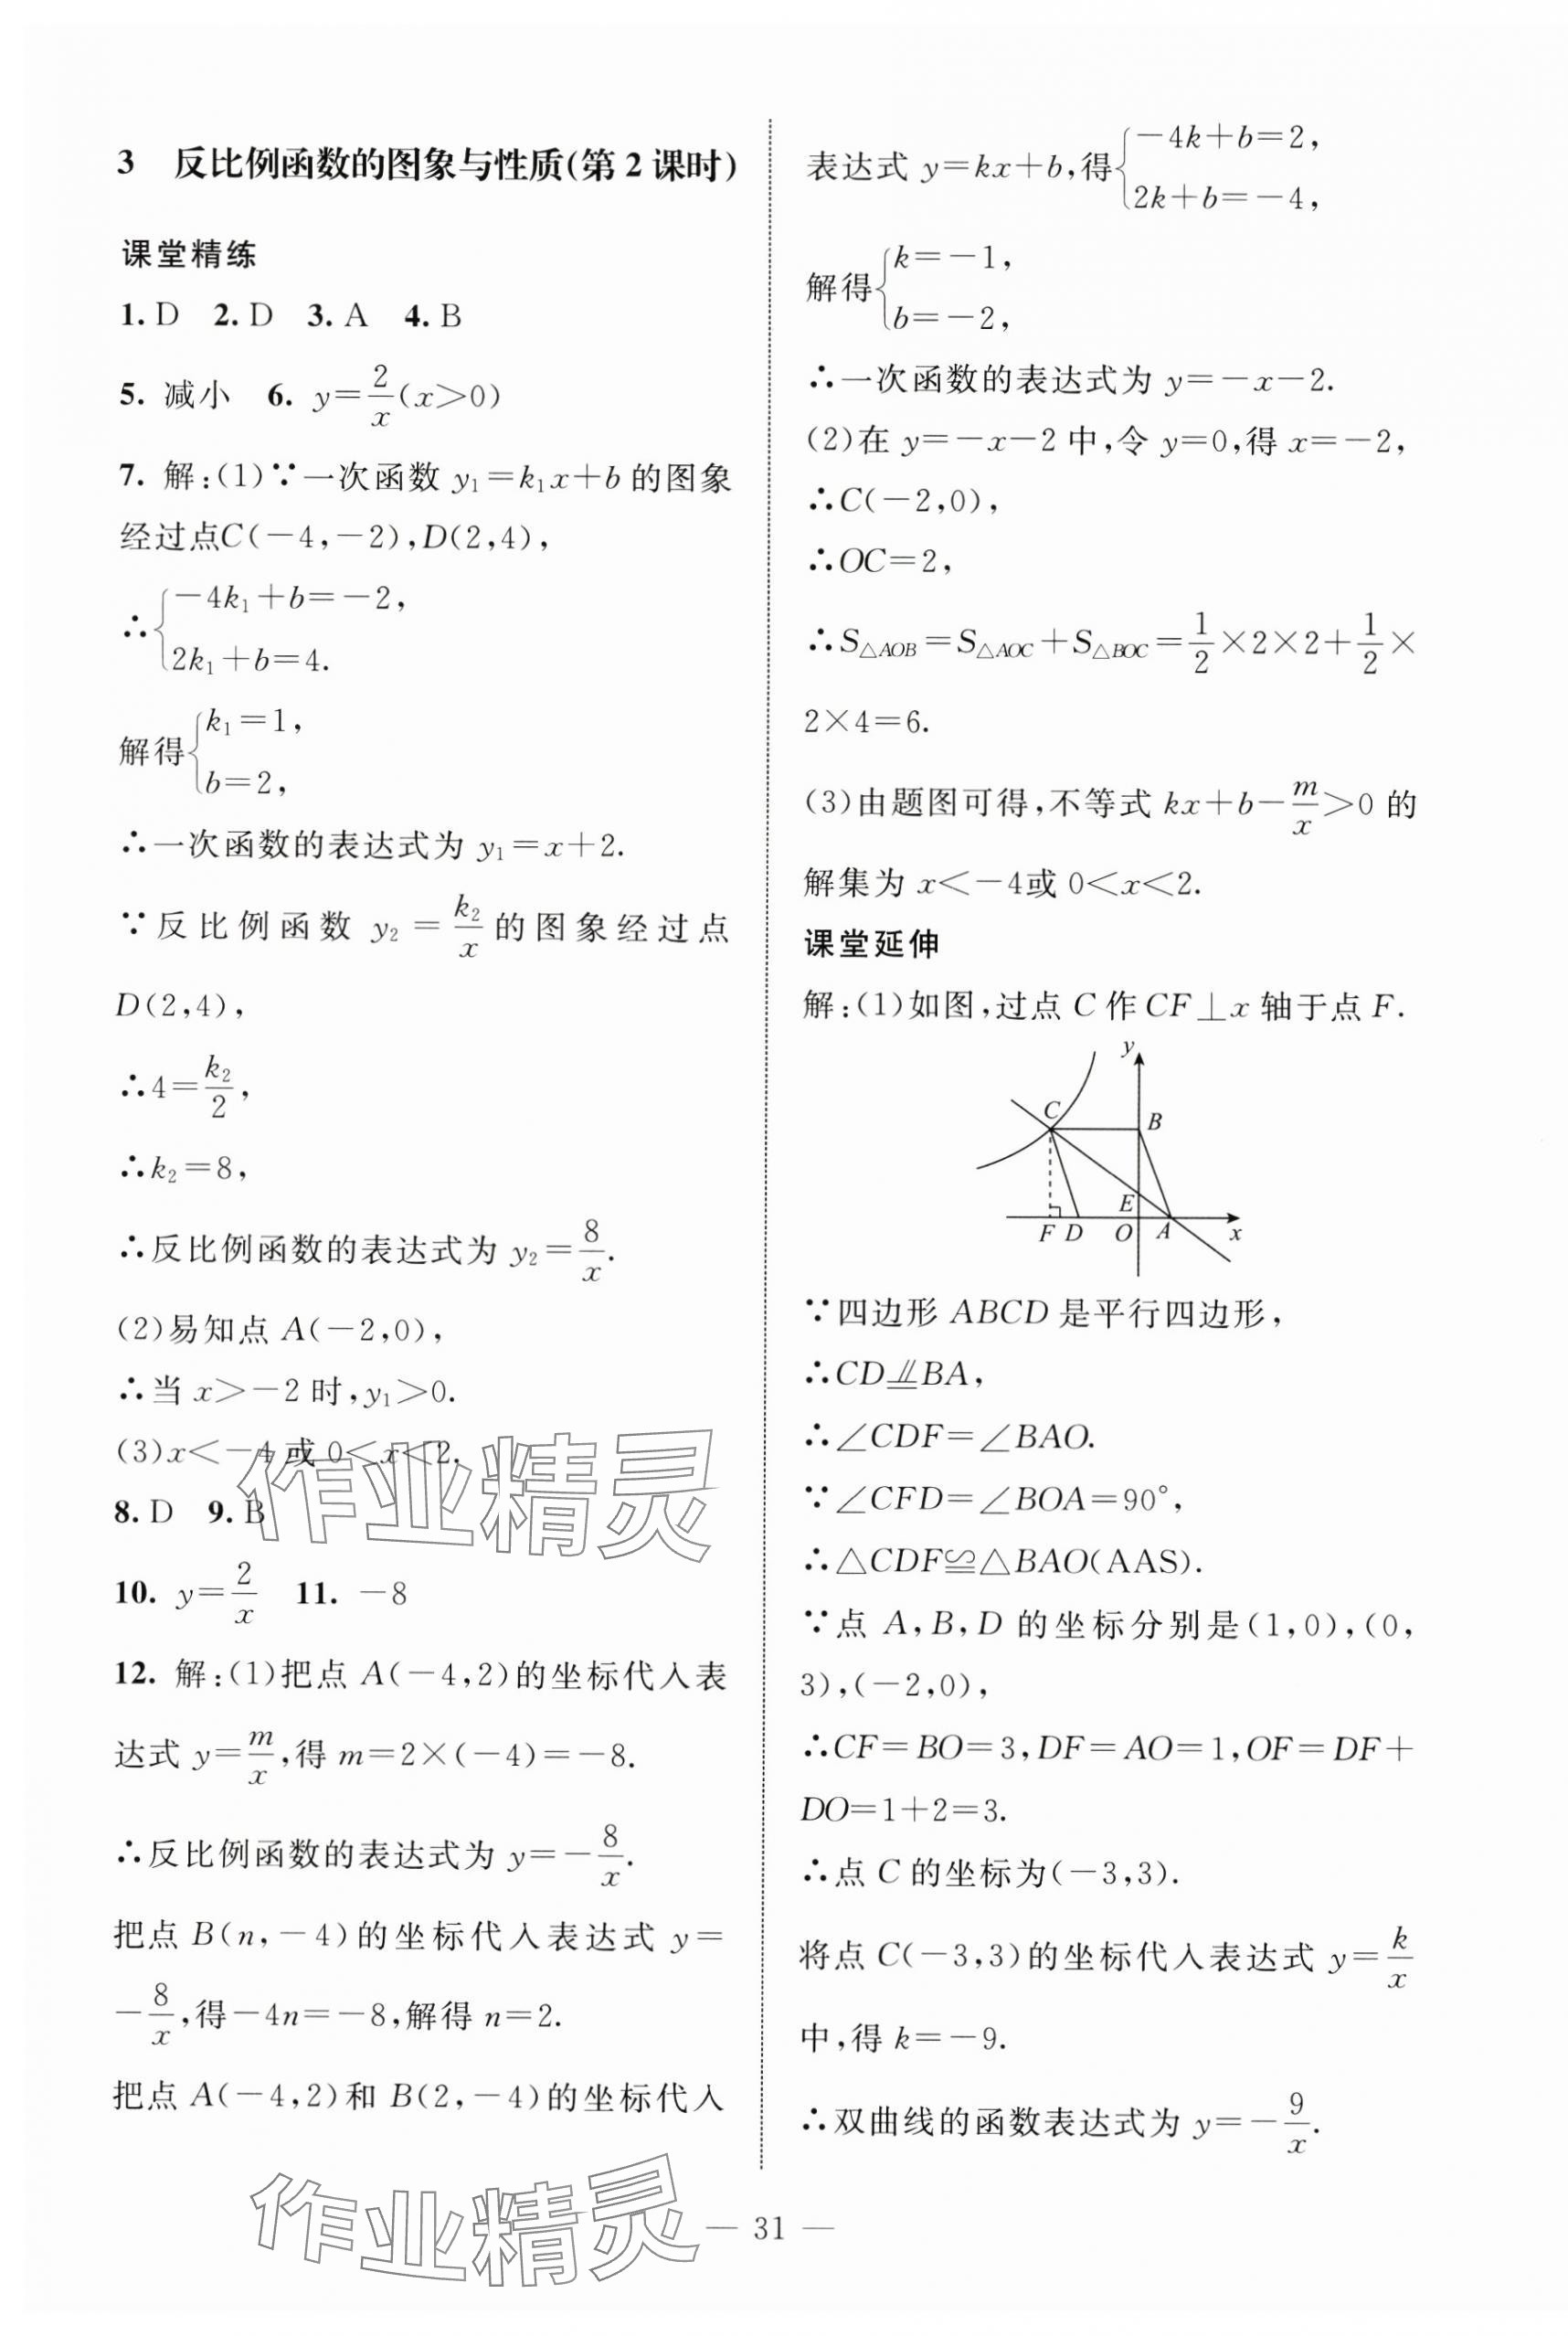 3 反比例函数的图象与性质(第2课时)
课堂精练
1. D 2. D 3. A 4. B
5. 减小 6. y=2/x(x>0)
7. 解:(1)∵一次函数 y₁=k₁x+b 的图象
经过点C(-4,-2),D(2,4),
∴{-4k₁+b=-2,
2k₁+b=4.
解得{k₁=1,
b=2,
∴一次函数的表达式为 y₁=x+2.
∵反比例函数 y₂=k₂/x的图象经过点
D(2,4),
∴4=k₂/2,
∴k₂=8,
∴反比例函数的表达式为 y₂=8/x.
(2)易知点 A(-2,0),
∴当 x>-2时,y₁>0.
(3)x<-4或 0<x<2.
8. D 9. B
10. y=2/x 11. -8
12. 解:(1)把点 A(-4,2)的坐标代入表
达式 y=m/x,得 m=2×(-4)=-8.
∴反比例函数的表达式为 y=-8/x.
把点 B(n,-4)的坐标代入表达式 y=
-8/x,得-4n=-8,解得 n=2.
把点 A(-4,2)和 B(2,-4)的坐标代入
表达式 y=kx+b,得{-4k+b=2,
2k+b=-4,
解得{k=-1,
b=-2,
∴一次函数的表达式为 y=-x-2.
(2)在 y=-x-2中,令 y=0,得 x=-2,
∴C(-2,0),
∴OC=2,
∴S△AOB=S△AOC+S△BOC=1/2×2×2+1/2×
2×4=6.
(3)由题图可得,不等式 kx+b-m/x>0 的
解集为 x<-4或 0<x<2.
课堂延伸
解:(1)如图,过点 C 作 CF⊥x 轴于点 F.
y
C
B
E
F D O A x
∵四边形 ABCD 是平行四边形,
∴CD⫽BA,
∴∠CDF=∠BAO.
∵∠CFD=∠BOA=90°,
∴△CDF≌△BAO(AAS).
∵点 A,B,D 的坐标分别是(1,0),(0,
3),(-2,0),
∴CF=BO=3,DF=AO=1,OF=DF+
DO=1+2=3.
∴点 C 的坐标为(-3,3).
将点 C(-3,3)的坐标代入表达式 y=k/x
中,得 k=-9.
∴双曲线的函数表达式为 y=-9/x.
作业精灵
作业精灵
— 31 —